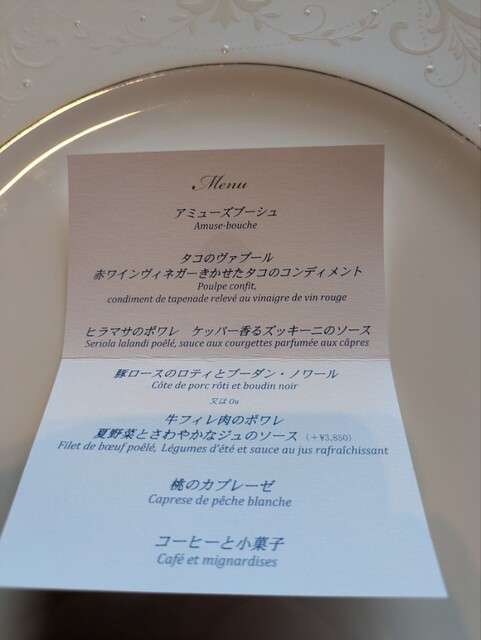 Menu
アミューズブーシュ
Amuse-bouche
タコのヴァプール
赤ワインヴィネガーきかせたタコのコンディメント
Poulpe confit,
condiment de tapenade relevé au vinaigre de vin rouge
ヒラマサのポワレ　ケッパー香るズッキーニのソース
Seriola lalandi poêlé, sauce aux courgettes parfumée aux câpres
豚ロースのロティとブーダン・ノワール
Côte de porc rôti et boudin noir
又は Ou
牛フィレ肉のポワレ
夏野菜とさわやかなジュのソース（＋¥3,850）
Filet de bœuf poêlé, Légumes d'été et sauce au jus rafraîchissant
桃のカプレーゼ
Caprese de pêche blanche
コーヒーと小菓子
Café et mignardises